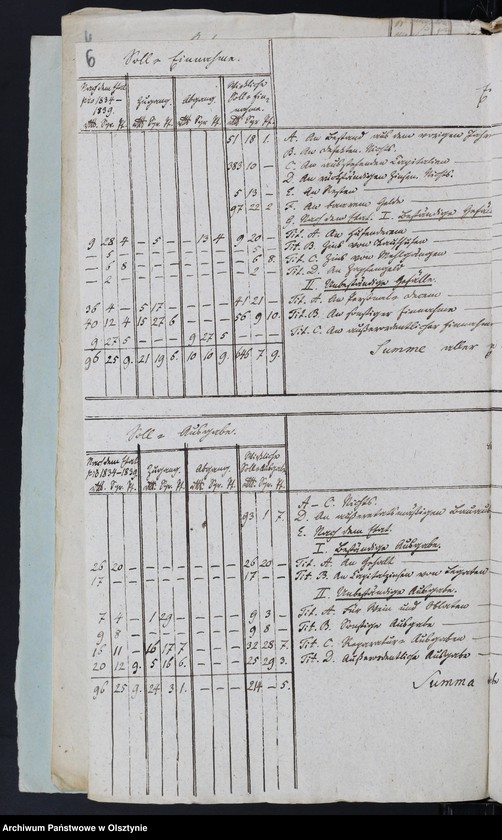 6
Soll = Einnahme.
Nach dem Etat pro 1834–1839 | Zugang. | Abgang. | Wirkliche Soll = Einnahme.
Rtl. Sgr. Pf. | Rtl. Sgr. Pf. | Rtl. Sgr. Pf. | Rtl. Sgr. Pf.
51 18 1. A. An Bestand aus dem vorigen Jahre
B. An Defecten. Nichts.
383 10 — C. An ausstehenden Capitalien
D. An rückständigen Zinsen. Nichts.
5 13 — E. An Resten
97 22 2 F. An baarem Gelde
G. Nach dem Etat. I. Beständige Gefälle.
9 28 4 — 5 — — 13 4 9 20 — Tit. A. An
— 5 — Tit. B. Zins von
— 6 8 — 6 8. Tit. C. Zins von
— 2 — — 2 — Tit. D. An
II. Unbeständige Gefälle.
36 4 — 5 17 — 41 21 — Tit. A. An
40 12 4 15 27 6 56 9 10. Tit. B. An sonstiger Einnahme
9 27 5 — — — 9 27 5 Tit. C. An außerordentlicher Einnahme
96 25 9. 21 19 6. 10 10 9. 646 7 9. Summe aller
Soll = Ausgabe.
Nach dem Etat pro 1834–1839 | Zugang. | Abgang. | Wirkliche Soll = Ausgabe
Rtl. Sgr. Pf. | Rtl. Sgr. Pf. | Rtl. Sgr. Pf. | Rtl. Sgr. Pf.
A – C. Nichts.
93 1 7. D. An außeretatsmäßigen
E. Nach dem Etat.
I. Beständige Ausgabe.
26 20 — 26 20 — Tit. A. An Gehalt
17 — — 17 — — Tit. B. An Capitalzinsen von Legaten
II. Unbeständige Ausgabe.
7 4 — 1 29 — 9 3 Tit. A. Für Wein und Oblaten
9 8 — 9 8 — Tit. B. Sonstige Ausgabe
16 11 — 16 17 7 32 28 7. Tit. C. Reparatur = Ausgaben
20 12 9. 5 16 6. 25 29 3. Tit. D. Außerordentliche Ausgabe
96 25 9. 24 3 1. — — — 214 — 5. Summa
Archiwum Państwowe w Olsztynie